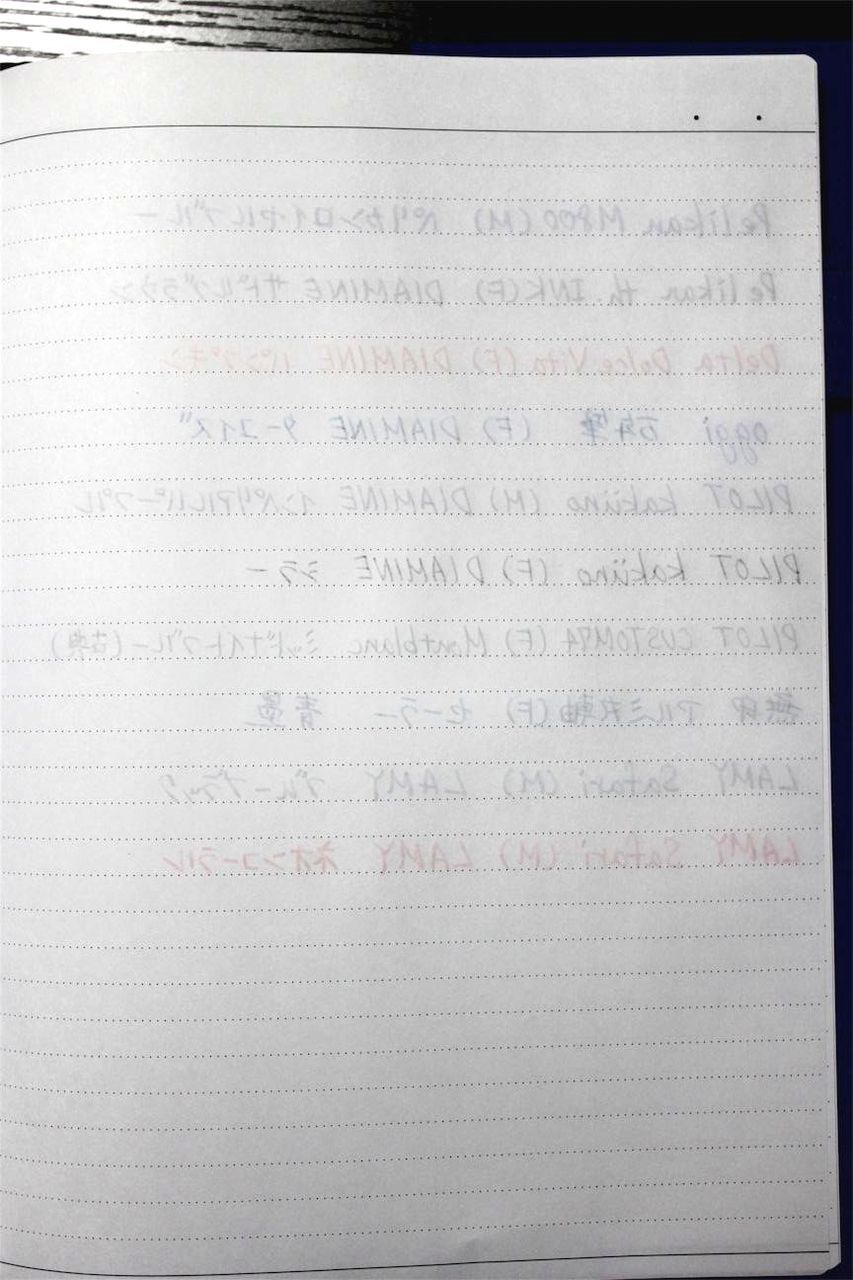 Pelikan M800 (M) ペリカン ロイヤルブルー
Pelikan th. INK (F) DIAMINE サドルブラウン
Delta Dolce Vita (F) DIAMINE パンプキン
oggi 万年筆 (F) DIAMINE ターコイズ
PILOT kaküno (M) DIAMINE インペリアルパープル
PILOT kaküno (F) DIAMINE シラー
PILOT CUSTOM74 (F) Montblanc ミッドナイトブルー(古典)
無印 アルミ丸軸(F) セーラー 青墨
LAMY Safari (M) LAMY ブルーブラック
LAMY Safari (M) LAMY ネオンコーラル